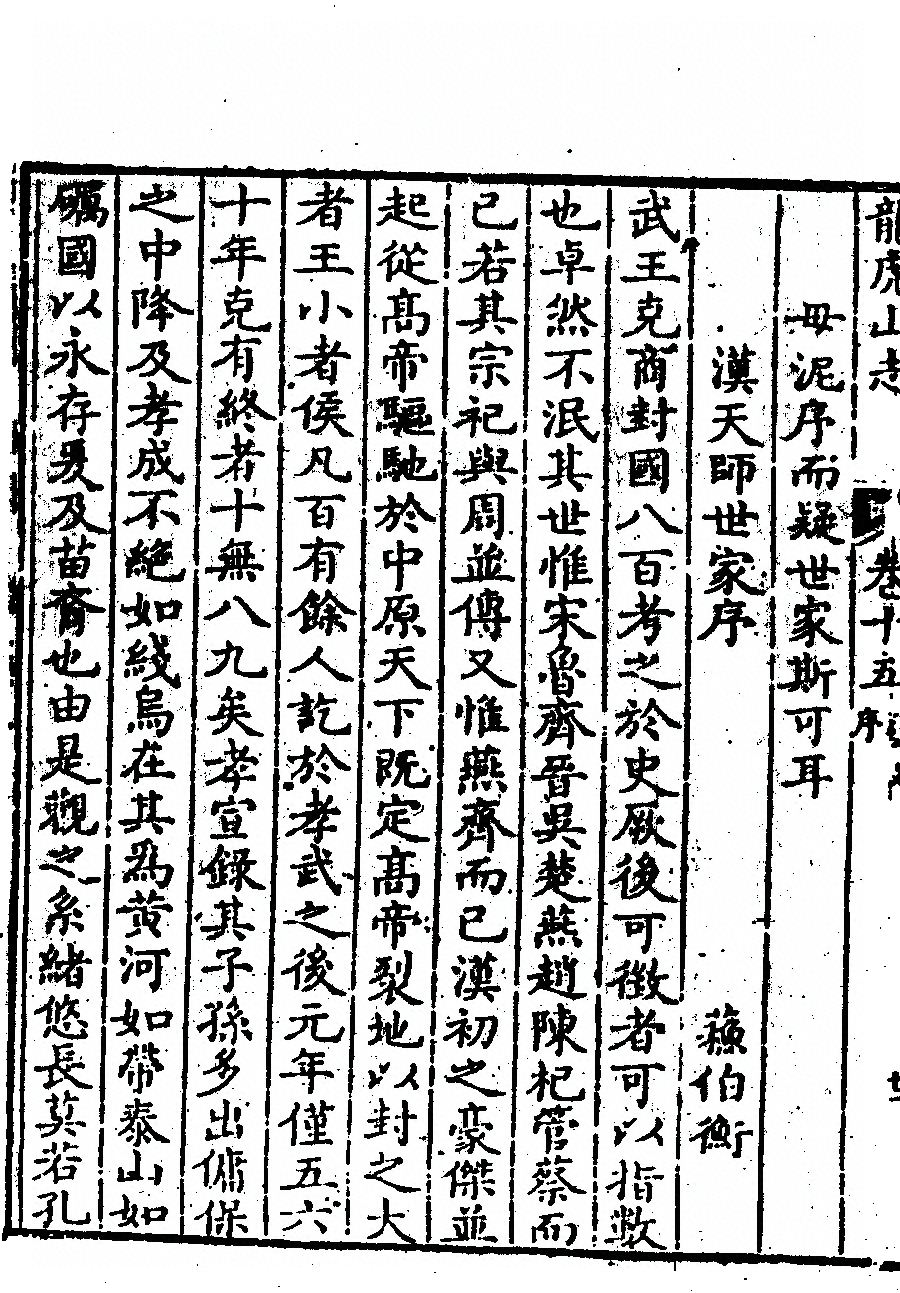 龍虎山志 卷十五 序
毋泥序而疑世家斯可耳
漢天師世家序 蘓伯衡
武王克商封國八百考之於史厥後可徴者可以指數
也卓然不泯其世惟宋魯齊晉吳楚燕趙陳杞管蔡而
已若其宗祀與周並傳又惟燕齊而已漢初之豪傑並
起從髙帝驅馳於中原天下既定髙帝裂地以封之大
者王小者侯凡百有餘人訖於孝武之後元年僅五六
十年克有終者十無八九矣孝宣錄其子孫多出傭保
之中降及孝成不絶如綫烏在其爲黄河如帶泰山如
礪國以永存爰及苗裔也由是觀之系緒悠長莫若孔